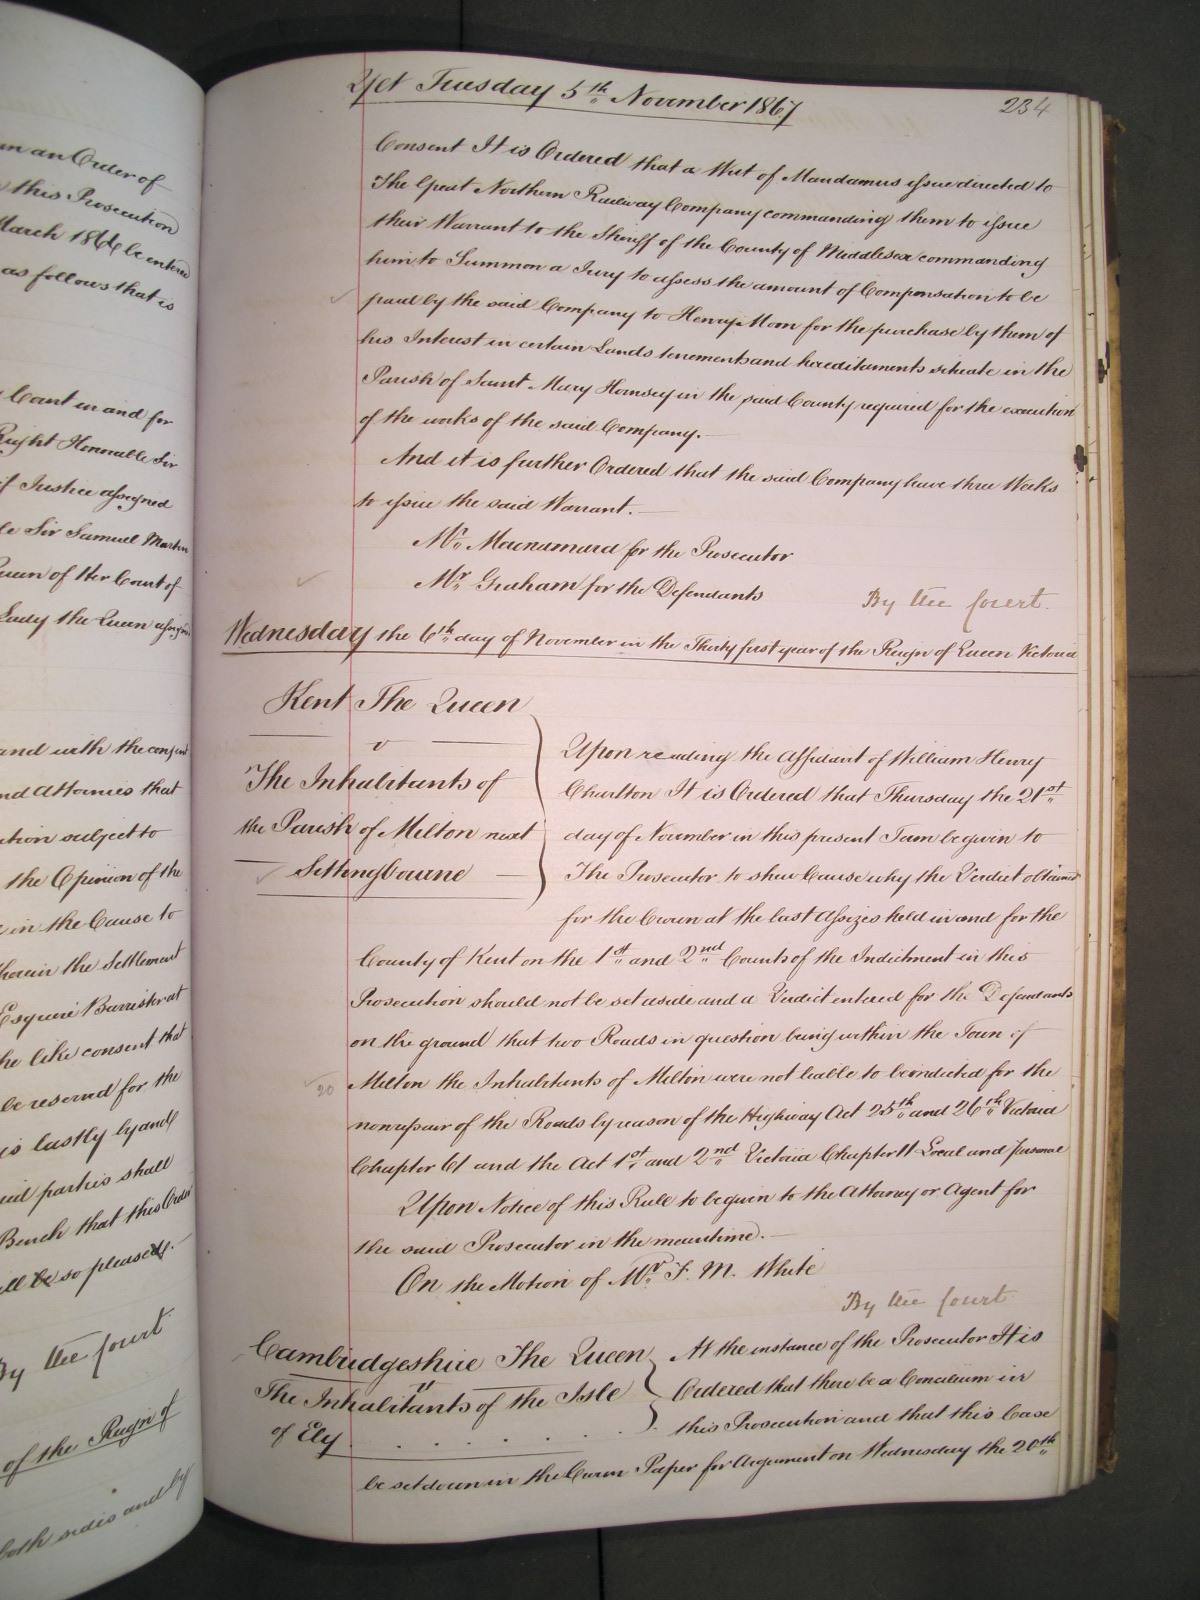 m an Order of
this Prosecution
March 1866 be entered
as follows that is
Court in and for
Right Honorable Sir
of Justice assigned
le Sir Samuel Martin
Queen of Her Court of
Lady the Queen assigned
and with the consent
nd Attornies that
ction subject to
the Opinion of the
in the Cause to
wherein the Settlement
Esquire Barrister at
he like consent that
be reserved for the
is lastly by and
aid parties shall
Bench that this Order
ll be so pleased.
By the Court
of the Reign of
both sides and by
Yet Tuesday 5th November 1867
234
Consent It is Ordered that a Writ of Mandamus issue directed to
The Great Northern Railway Company commanding them to issue
their Warrant to the Sheriff of the County of Middlesex commanding
him to Summon a Jury to assess the amount of Compensation to be
paid by the said Company to Henry Moon for the purchase by them of
his Interest in certain Lands tenements and hereditaments situate in the
Parish of Saint Mary Hornsey in the said County required for the execution
of the works of the said Company.
And it is further Ordered that the said Company have three Weeks
to issue the said Warrant.
Mr. Macnamara for the Prosecutor
Mr. Graham for the Defendants
By the Court.
Wednesday the 6th day of November in the Thirty first year of the Reign of Queen Victoria
Kent The Queen
v
The Inhabitants of
the Parish of Milton next
Sittingbourne
Upon reading the Affidavit of William Henry
Charlton It is Ordered that Thursday the 21st
day of November in this present Term be given to
The Prosecutor to shew Cause why the Verdict obtained
for the Crown at the last Assizes held in and for the
County of Kent on the 1st and 2nd Counts of the Indictment in this
Prosecution should not be set aside and a Verdict entered for the Defendants
on the ground that two Roads in question being within the Town of
20
Milton the Inhabitants of Milton were not liable to be indicted for the
nonrepair of the Roads by reason of the Highway Act 25th and 26th Victoria
Chapter 61 and the Act 1st and 2nd Victoria Chapter 11 Local and Personal
Upon Notice of this Rule to be given to the Attorney or Agent for
the said Prosecutor in the meantime.
On the Motion of Mr. F. M. White
By the Court
Cambridgeshire The Queen
v
The Inhabitants of the Isle
of Ely
At the instance of the Prosecutor It is
Ordered that there be a Concilium in
this Prosecution and that this Case
be set down in the Crown Paper for Argument on Wednesday the 20th